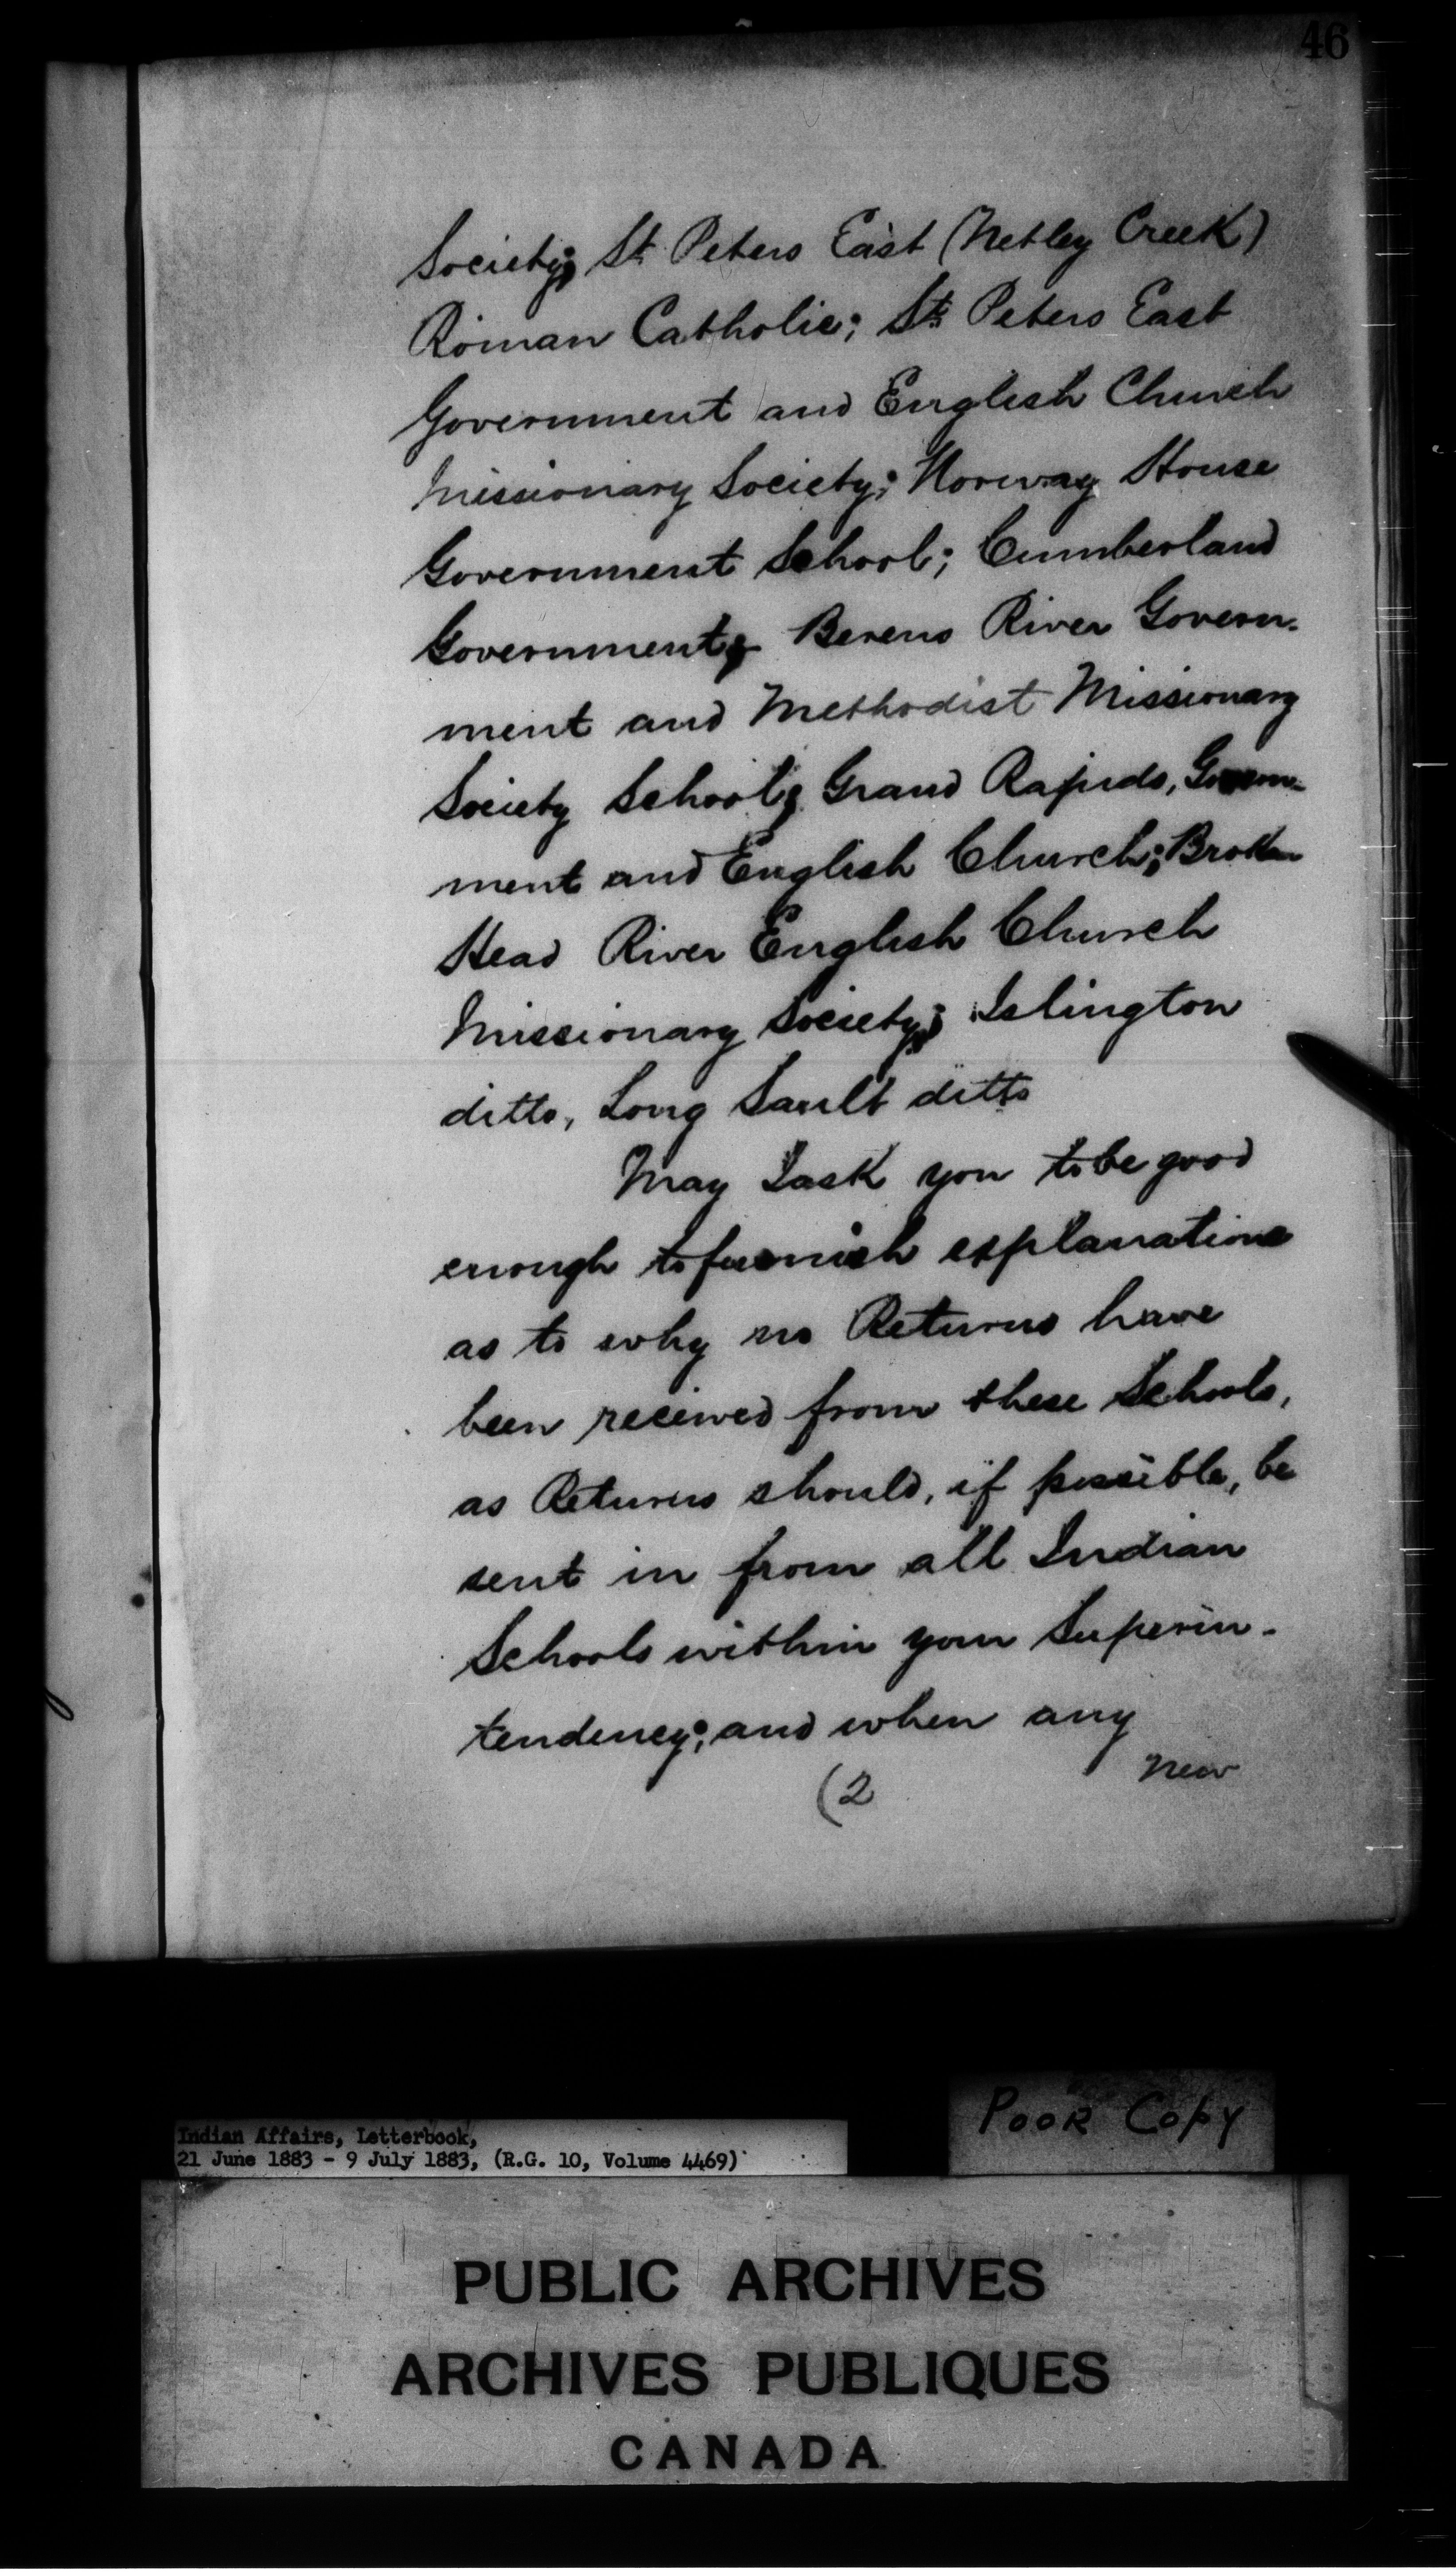 46
Society; St. Peters East (Netley Creek)
Roman Catholic; St. Peters East
Government and English Church
Missionary Society; Norway House
Government School; Cumberland
Government; Berens River Govern-
ment and Methodist Missionary
Society School; Grand Rapids, Govern-
ment and English Church; Broken
Head River English Church
Missionary Society; Islington
ditto, Long Sault ditto
May I ask you to be good
enough to furnish explanations
as to why no Returns have
been received from these Schools,
as Returns should, if possible, be
sent in from all Indian
Schools within your Superin-
tendency; and when any
(2
new
Poor Copy
Indian Affairs, Letterbook,
21 June 1883 - 9 July 1883, (R.G. 10, Volume 4469)
PUBLIC ARCHIVES
ARCHIVES PUBLIQUES
CANADA